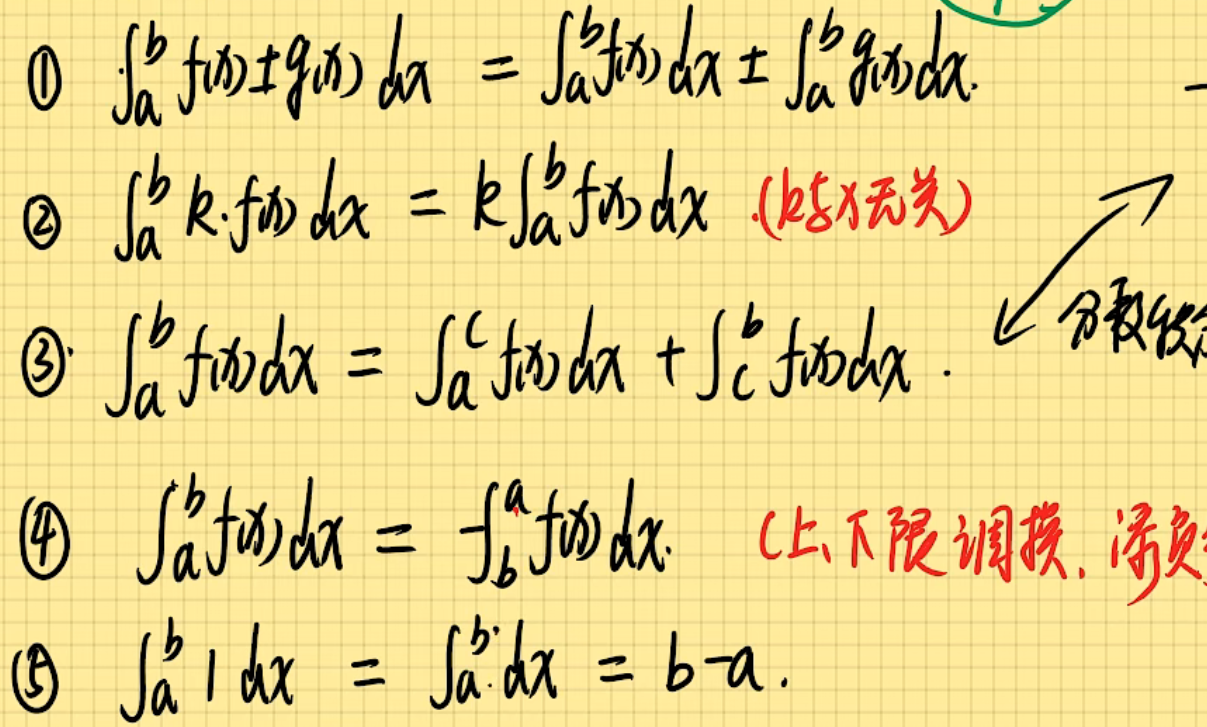 ① ∫_a^b f(x)±g(x) dx = ∫_a^b f(x)dx ± ∫_a^b g(x)dx.
② ∫_a^b k·f(x) dx = k∫_a^b f(x)dx (k与x无关)
③ ∫_a^b f(x)dx = ∫_a^c f(x)dx + ∫_c^b f(x)dx.
分段
④ ∫_a^b f(x)dx = -∫_b^a f(x)dx. (上、下限调换,添负
⑤ ∫_a^b 1 dx = ∫_a^b dx = b-a.